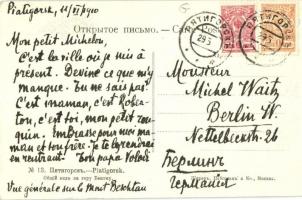 Piatigorsk, 11/VI 1910
Открытое письмо.
ПЯТИГОРСК
ПЯТИГОРСК
Mon petit Michelou,
C'est la ville où je suis à
présent. Devine ce que m'y
manque. Tu ne sais pas?
C'est maman, c'est Rober-
ton, c'est toi, mon petit
quin. Embrasse pour moi ma-
man et ton frère. Je te le rendrai
en rentrant. Ton papa Volodi
Monsieur
Michel Waitz
Berlin W.
Nettelbeckstr. 26
Берлинъ
Германія
№ 13. Пятигорскъ.—Piatigorsk.
Общій видъ на гору Бештау.
Vue générale sur le Mont Bechtau